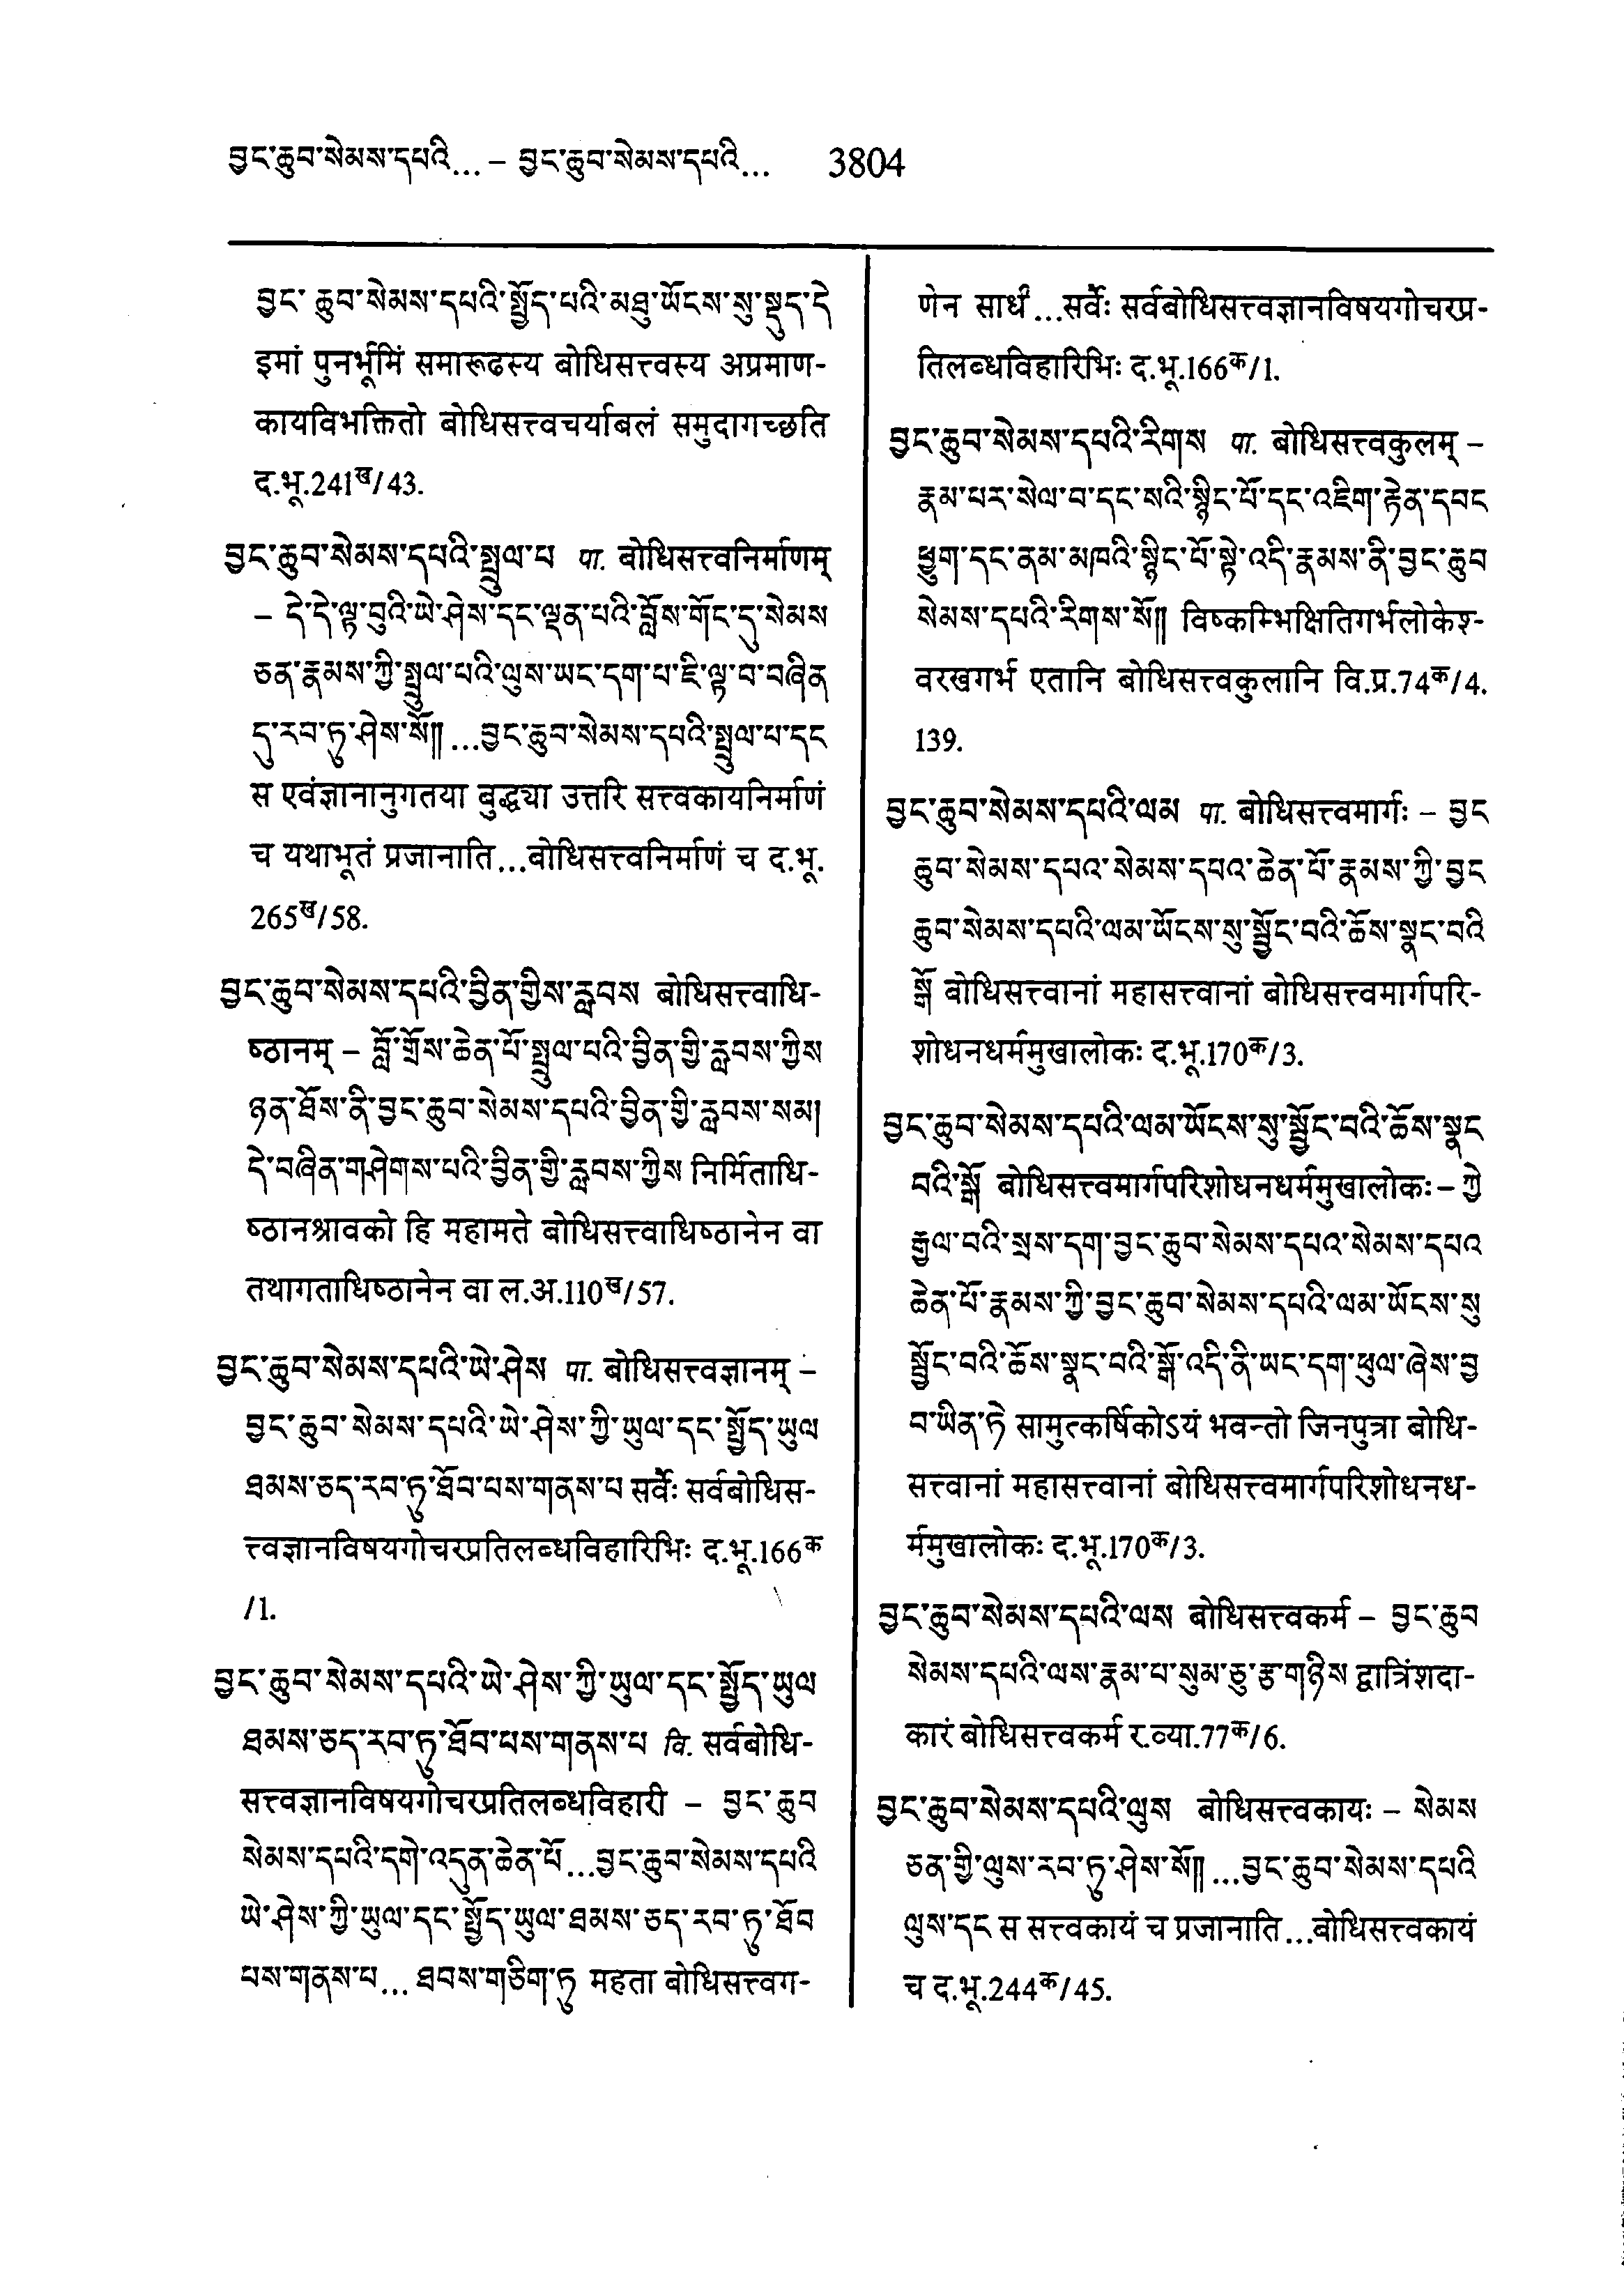 བྱང་ཆུབ་སེམས་དཔའི... – བྱང་ཆུབ་སེམས་དཔའི... 3804
བྱང་ ཆུབ་སེམས་དཔའི་སྤྱོད་པའི་མཐུ་ཡོངས་སུ་སྡུད་དེ
इमां पुनर्भूमिं समारूढस्य बोधिसत्त्वस्य अप्रमाण-
कायविभक्तितो बोधिसत्त्वचर्याबलं समुदागच्छति
द.भू.241ख/43.
བྱང་ཆུབ་སེམས་དཔའི་སྤྲུལ་པ पा. बोधिसत्त्वनिर्माणम्
– དེ་དེ་ལྟ་བུའི་ཡེ་ཤེས་དང་ལྡན་པའི་བློས་གོང་དུ་སེམས
ཅན་རྣམས་ཀྱི་སྤྲུལ་པའི་ལུས་ཡང་དག་པ་ཇི་ལྟ་བ་བཞིན
དུ་རབ་ཏུ་ཤེས་སོ༎ ...བྱང་ཆུབ་སེམས་དཔའི་སྤྲུལ་པ་དང
स एवंज्ञानानुगतया बुद्ध्या उत्तरि सत्त्वकायनिर्माणं
च यथाभूतं प्रजानाति...बोधिसत्त्वनिर्माणं च द.भू.
265ख/58.
བྱང་ཆུབ་སེམས་དཔའི་བྱིན་གྱིས་རླབས बोधिसत्त्वाधि-
ष्ठानम् – བློ་གྲོས་ཆེན་པོ་སྤྲུལ་པའི་བྱིན་གྱི་རླབས་ཀྱིས
ཉན་ཐོས་ནི་བྱང་ཆུབ་སེམས་དཔའི་བྱིན་གྱི་རླབས་སམ།
དེ་བཞིན་གཤེགས་པའི་བྱིན་གྱི་རླབས་ཀྱིས निर्मिताधि-
ष्ठानश्रावको हि महामते बोधिसत्त्वाधिष्ठानेन वा
तथागताधिष्ठानेन वा ल.अ.110ख/57.
བྱང་ཆུབ་སེམས་དཔའི་ཡེ་ཤེས पा. बोधिसत्त्वज्ञानम् –
བྱང་ཆུབ་སེམས་དཔའི་ཡེ་ཤེས་ཀྱི་ཡུལ་དང་སྤྱོད་ཡུལ
ཐམས་ཅད་རབ་ཏུ་ཐོབ་པས་གནས་པ सर्वैः सर्वबोधिस-
त्त्वज्ञानविषयगोचरप्रतिलब्धविहारिभिः द.भू.166क
/1.
བྱང་ཆུབ་སེམས་དཔའི་ཡེ་ཤེས་ཀྱི་ཡུལ་དང་སྤྱོད་ཡུལ
ཐམས་ཅད་རབ་ཏུ་ཐོབ་པས་གནས་པ वि. सर्वबोधि-
सत्त्वज्ञानविषयगोचरप्रतिलब्धविहारी – བྱང་ཆུབ
སེམས་དཔའི་དགེ་འདུན་ཆེན་པོ...བྱང་ཆུབ་སེམས་དཔའི
ཡེ་ཤེས་ཀྱི་ཡུལ་དང་སྤྱོད་ཡུལ་ཐམས་ཅད་རབ་ཏུ་ཐོབ
པས་གནས་པ... ཐབས་གཅིག་ཏུ महता बोधिसत्त्वग-
णेन सार्धं...सर्वैः सर्वबोधिसत्त्वज्ञानविषयगोचरप्र-
तिलब्धविहारिभिः द.भू.166क/1.
བྱང་ཆུབ་སེམས་དཔའི་རིགས पा. बोधिसत्त्वकुलम् –
རྣམ་པར་སེལ་བ་དང་སའི་སྙིང་པོ་དང་འཇིག་རྟེན་དབང
ཕྱུག་དང་ནམ་མཁའི་སྙིང་པོ་སྟེ་འདི་རྣམས་ནི་བྱང་ཆུབ
སེམས་དཔའི་རིགས་སོ༎ विष्कम्भिक्षितिगर्भलोकेश्-
वरखगर्भ एतानि बोधिसत्त्वकुलानि वि.प्र.74क/4.
139.
བྱང་ཆུབ་སེམས་དཔའི་ལམ पा. बोधिसत्त्वमार्गः – བྱང
ཆུབ་སེམས་དཔའ་སེམས་དཔའ་ཆེན་པོ་རྣམས་ཀྱི་བྱང
ཆུབ་སེམས་དཔའི་ལམ་ཡོངས་སུ་སྦྱོང་བའི་ཆོས་སྣང་བའི
སྒོ बोधिसत्त्वानां महासत्त्वानां बोधिसत्त्वमार्गपरि-
शोधनधर्ममुखालोकः द.भू.170क/3.
བྱང་ཆུབ་སེམས་དཔའི་ལམ་ཡོངས་སུ་སྦྱོང་བའི་ཆོས་སྣང
བའི་སྒོ बोधिसत्त्वमार्गपरिशोधनधर्ममुखालोकः – ཀྱེ
རྒྱལ་བའི་སྲས་དག་བྱང་ཆུབ་སེམས་དཔའ་སེམས་དཔའ
ཆེན་པོ་རྣམས་ཀྱི་བྱང་ཆུབ་སེམས་དཔའི་ལམ་ཡོངས་སུ
སྦྱོང་བའི་ཆོས་སྣང་བའི་སྒོ་འདི་ནི་ཡང་དག་ཕུལ་ཞེས་བྱ
བ་ཡིན་ཏེ सामुत्कर्षिकोऽयं भवन्तो जिनपुत्रा बोधि-
सत्त्वानां महासत्त्वानां बोधिसत्त्वमार्गपरिशोधनध-
र्ममुखालोकः द.भू.170क/3.
བྱང་ཆུབ་སེམས་དཔའི་ལས बोधिसत्त्वकर्म – བྱང་ཆུབ
སེམས་དཔའི་ལས་རྣམ་པ་སུམ་ཅུ་རྩ་གཉིས द्वात्रिंशदा-
कारं बोधिसत्त्वकर्म र.व्या.77क/6.
བྱང་ཆུབ་སེམས་དཔའི་ལུས बोधिसत्त्वकायः – སེམས
ཅན་གྱི་ལུས་རབ་ཏུ་ཤེས་སོ༎ ...བྱང་ཆུབ་སེམས་དཔའི
ལུས་དང स सत्त्वकायं च प्रजानाति...बोधिसत्त्वकायं
च द.भू.244क/45.